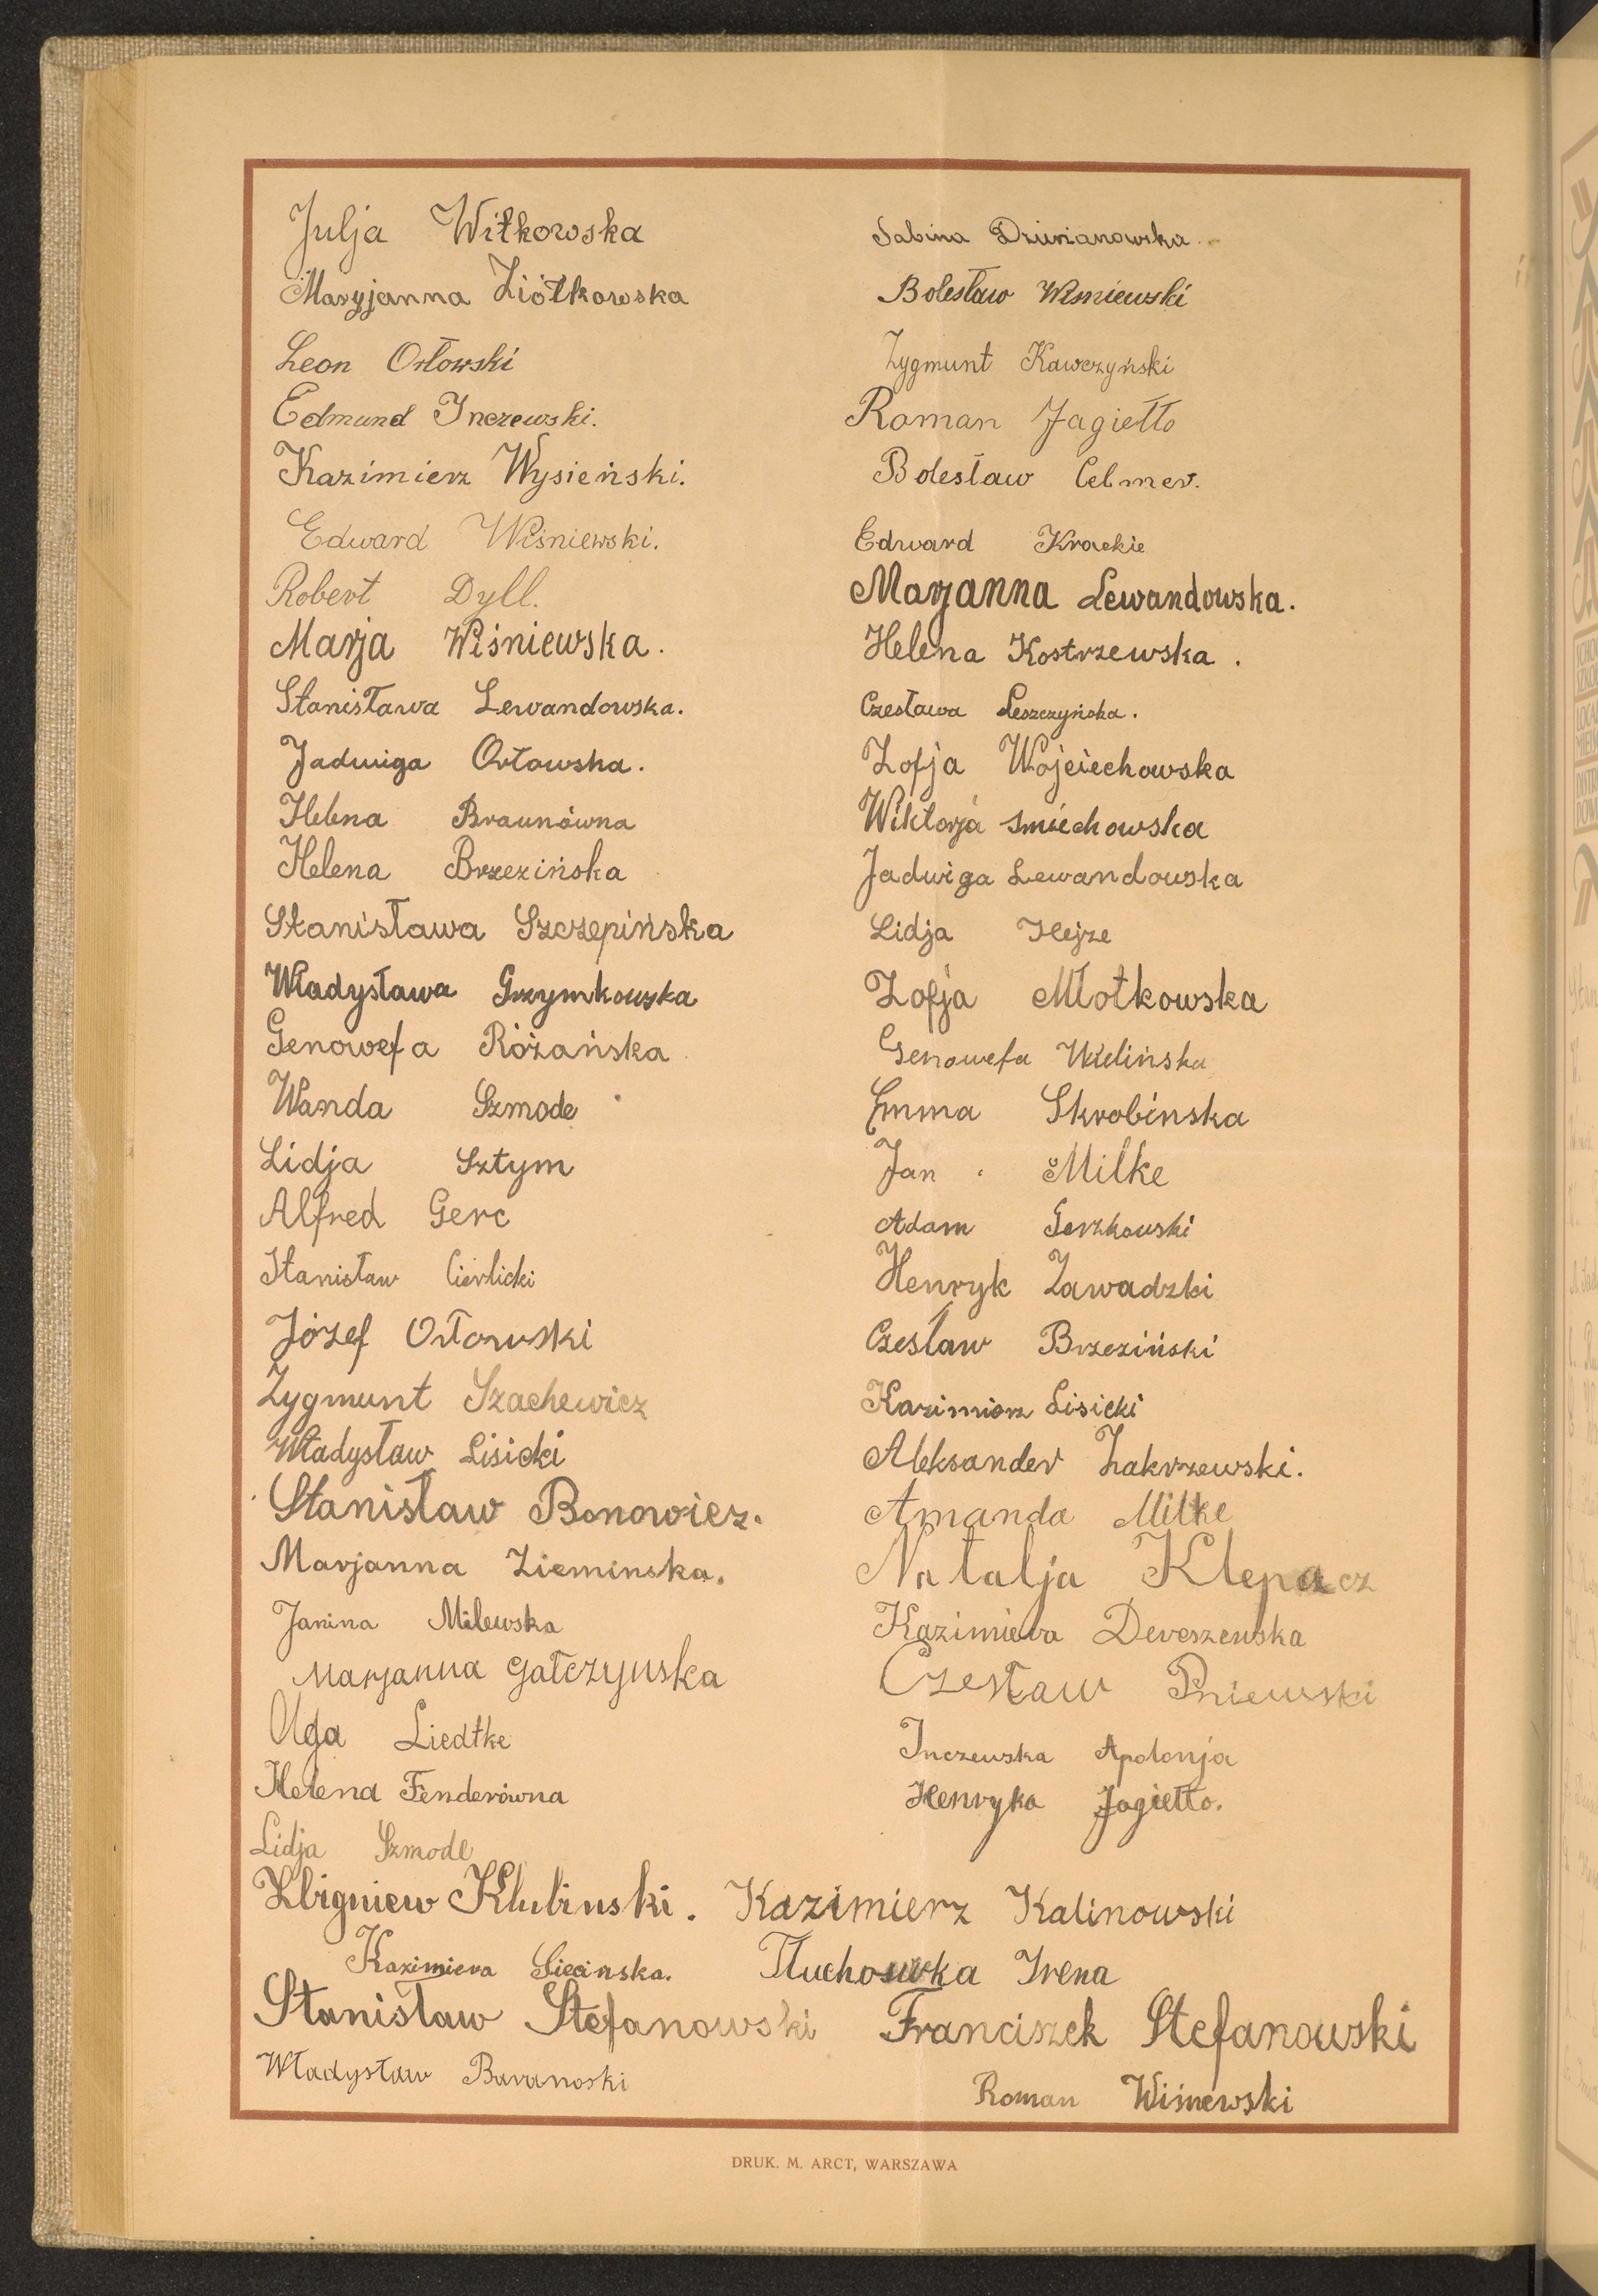 Julja Witkowska
Maryjanna Ziółkowska
Leon Orłowski
Edmund Inczewski.
Kazimierz Wysieński.
Edward Wiśniewski.
Robert Dyll.
Marja Wiśniewska.
Stanisława Lewandowska.
Jadwiga Orłowska.
Helena Braunówna
Helena Brzezińska
Stanisława Szczepińska
Władysława Grzymkowska
Genowefa Różańska
Wanda Szmode
Lidja Sztym
Alfred Gerc
Stanisław Cierlicki
Józef Orłowski
Zygmunt Szachewicz
Władysław Lisicki
Stanisław Bonowicz.
Marjanna Zieminska.
Janina Milewska
Marjanna Gałczynska
Olga Liedtke
Helena Fenderówna
Lidja Szmode
Sabina Dziurianowska
Bolesław Wisniewski
Zygmunt Kawczyński
Roman Jagiełło
Bolesław Celmer.
Edward Krackie
Marjanna Lewandowska.
Helena Kostrzewska.
Czesława Leszczyńska.
Zofja Wojciechowska
Wiktorja Smiechowska
Jadwiga Lewandowska
Lidja Hejze
Zofja Młotkowska
Genowefa Wielińska
Emma Skrobinska
Jan Milke
Adam Gerzkowski
Henryk Zawadzki
Czesław Brzeziński
Kazimierz Lisicki
Aleksander Zakrzewski.
Amanda Milke
Natalja Klepacz
Kazimiera Dereszewska
Czesław Pniewski
Inczewska Apolonja
Henryka Jagiełło.
Zbigniew Klubinski. Kazimierz Kalinowski
Kazimiera Siecinska. Tłuchowska Irena
Stanisław Stefanowski Franciszek Stefanowski
Władysław Baranoski Roman Wiśnewski
DRUK. M. ARCT, WARSZAWA